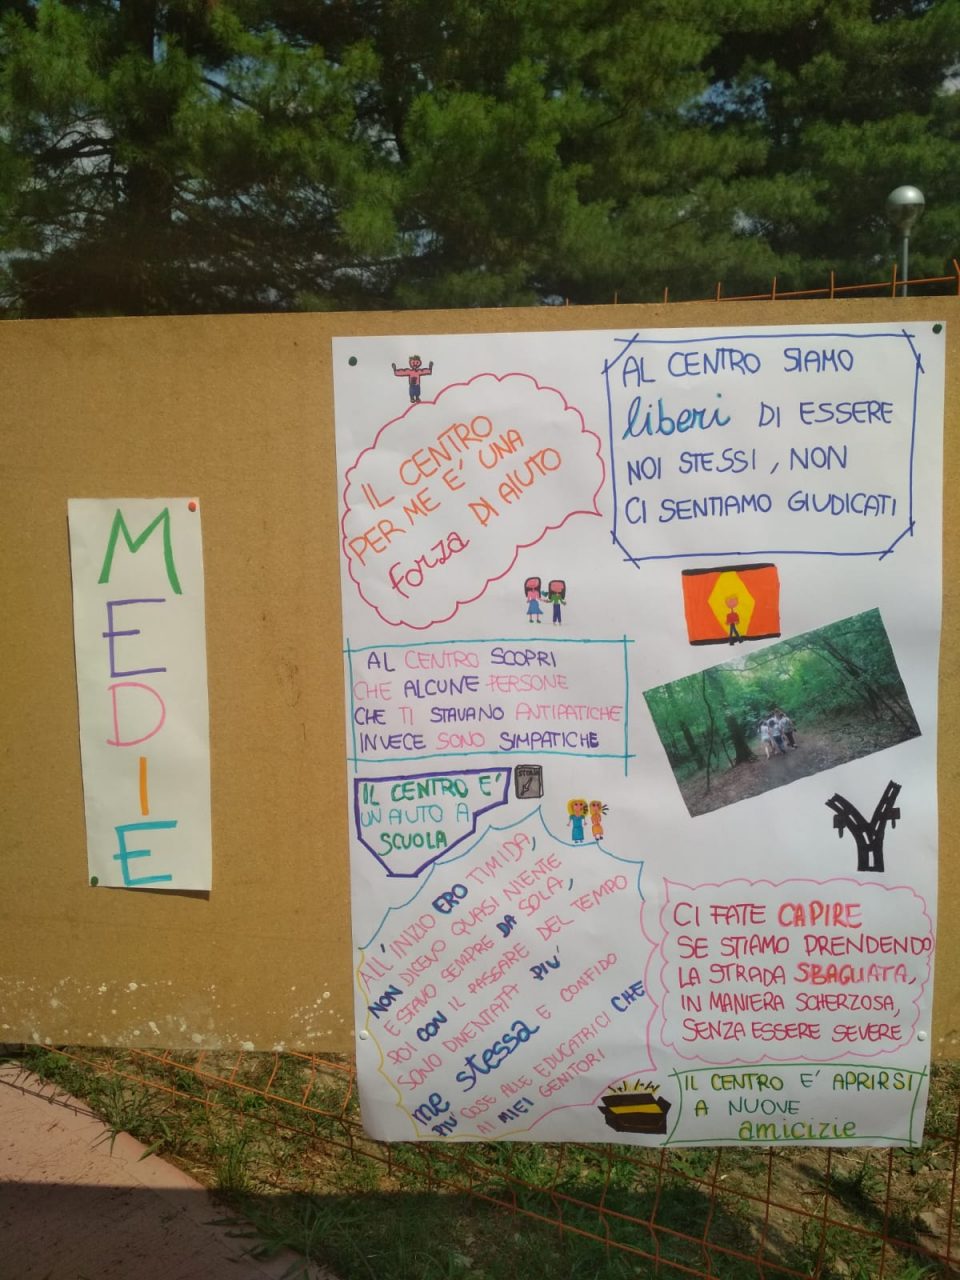 MEDIE
IL CENTRO
PER ME E' UNA
forza DI AIUTO
AL CENTRO SIAMO
liberi DI ESSERE
NOI STESSI, NON
CI SENTIAMO GIUDICATI
AL CENTRO SCOPRI
CHE ALCUNE PERSONE
CHE TI STAVANO ANTIPATICHE
INVECE SONO SIMPATICHE
IL CENTRO E'
UN AIUTO A
SCUOLA
STORIA
ALL'INIZIO ERO TIMIDA,
NON DICEVO QUASI NIENTE
E STAVO SEMPRE DA SOLA,
POI CON IL PASSARE DEL TEMPO
SONO DIVENTATA PIU'
me stessa E CONFIDO
PIU' COSE ALLE EDUCATRICI CHE
AI MIEI GENITORI
CI FATE CAPIRE
SE STIAMO PRENDENDO
LA STRADA SBAGLIATA,
IN MANIERA SCHERZOSA,
SENZA ESSERE SEVERE
IL CENTRO E' APRIRSI
A NUOVE
amicizie